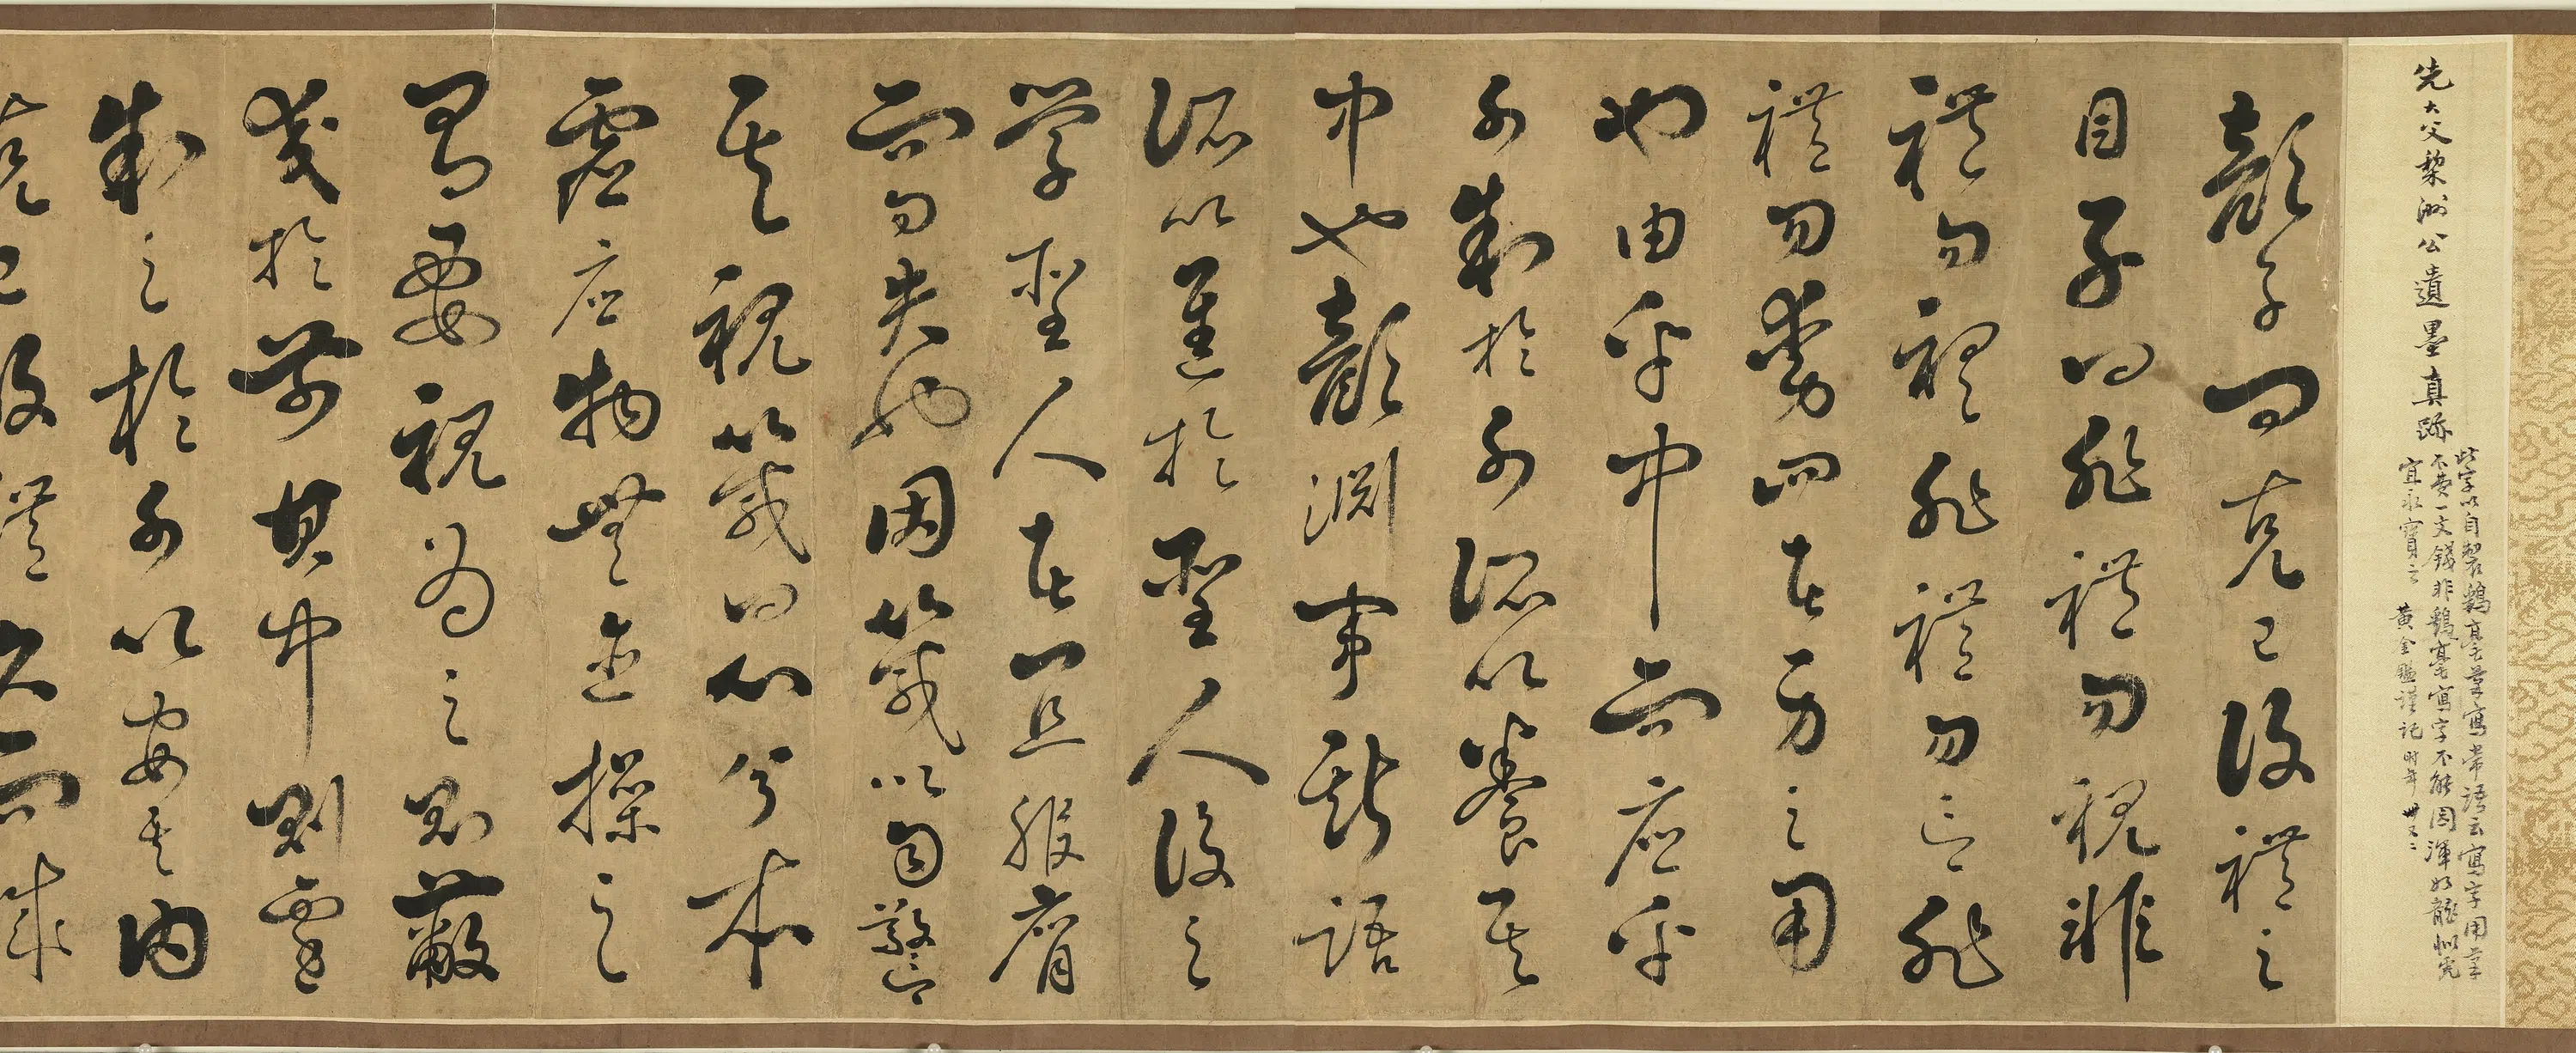 先大父梨洲公遺墨真跡
此字以自製鷄毫筆寫常語云寫字用筆
不費一文錢非鷄毫寫字不能圆渾如龍似虎
宜永寶之 黄金謹記时年卅又二
顔子问克己復禮之
目子曰非禮勿視非
禮勿聽非禮勿言非
禮勿動四者身之用
也由乎中而應乎
外制於外所以養其
中也顔淵事斯語
所以進於聖人後之
学聖人者宜服膺
而勿失也因箴以自警
其視箴曰心兮本
虚应物無迹操之
有要視為之則蔽
交於前其中則遷
制之於外以安其内
克己復禮久而誠